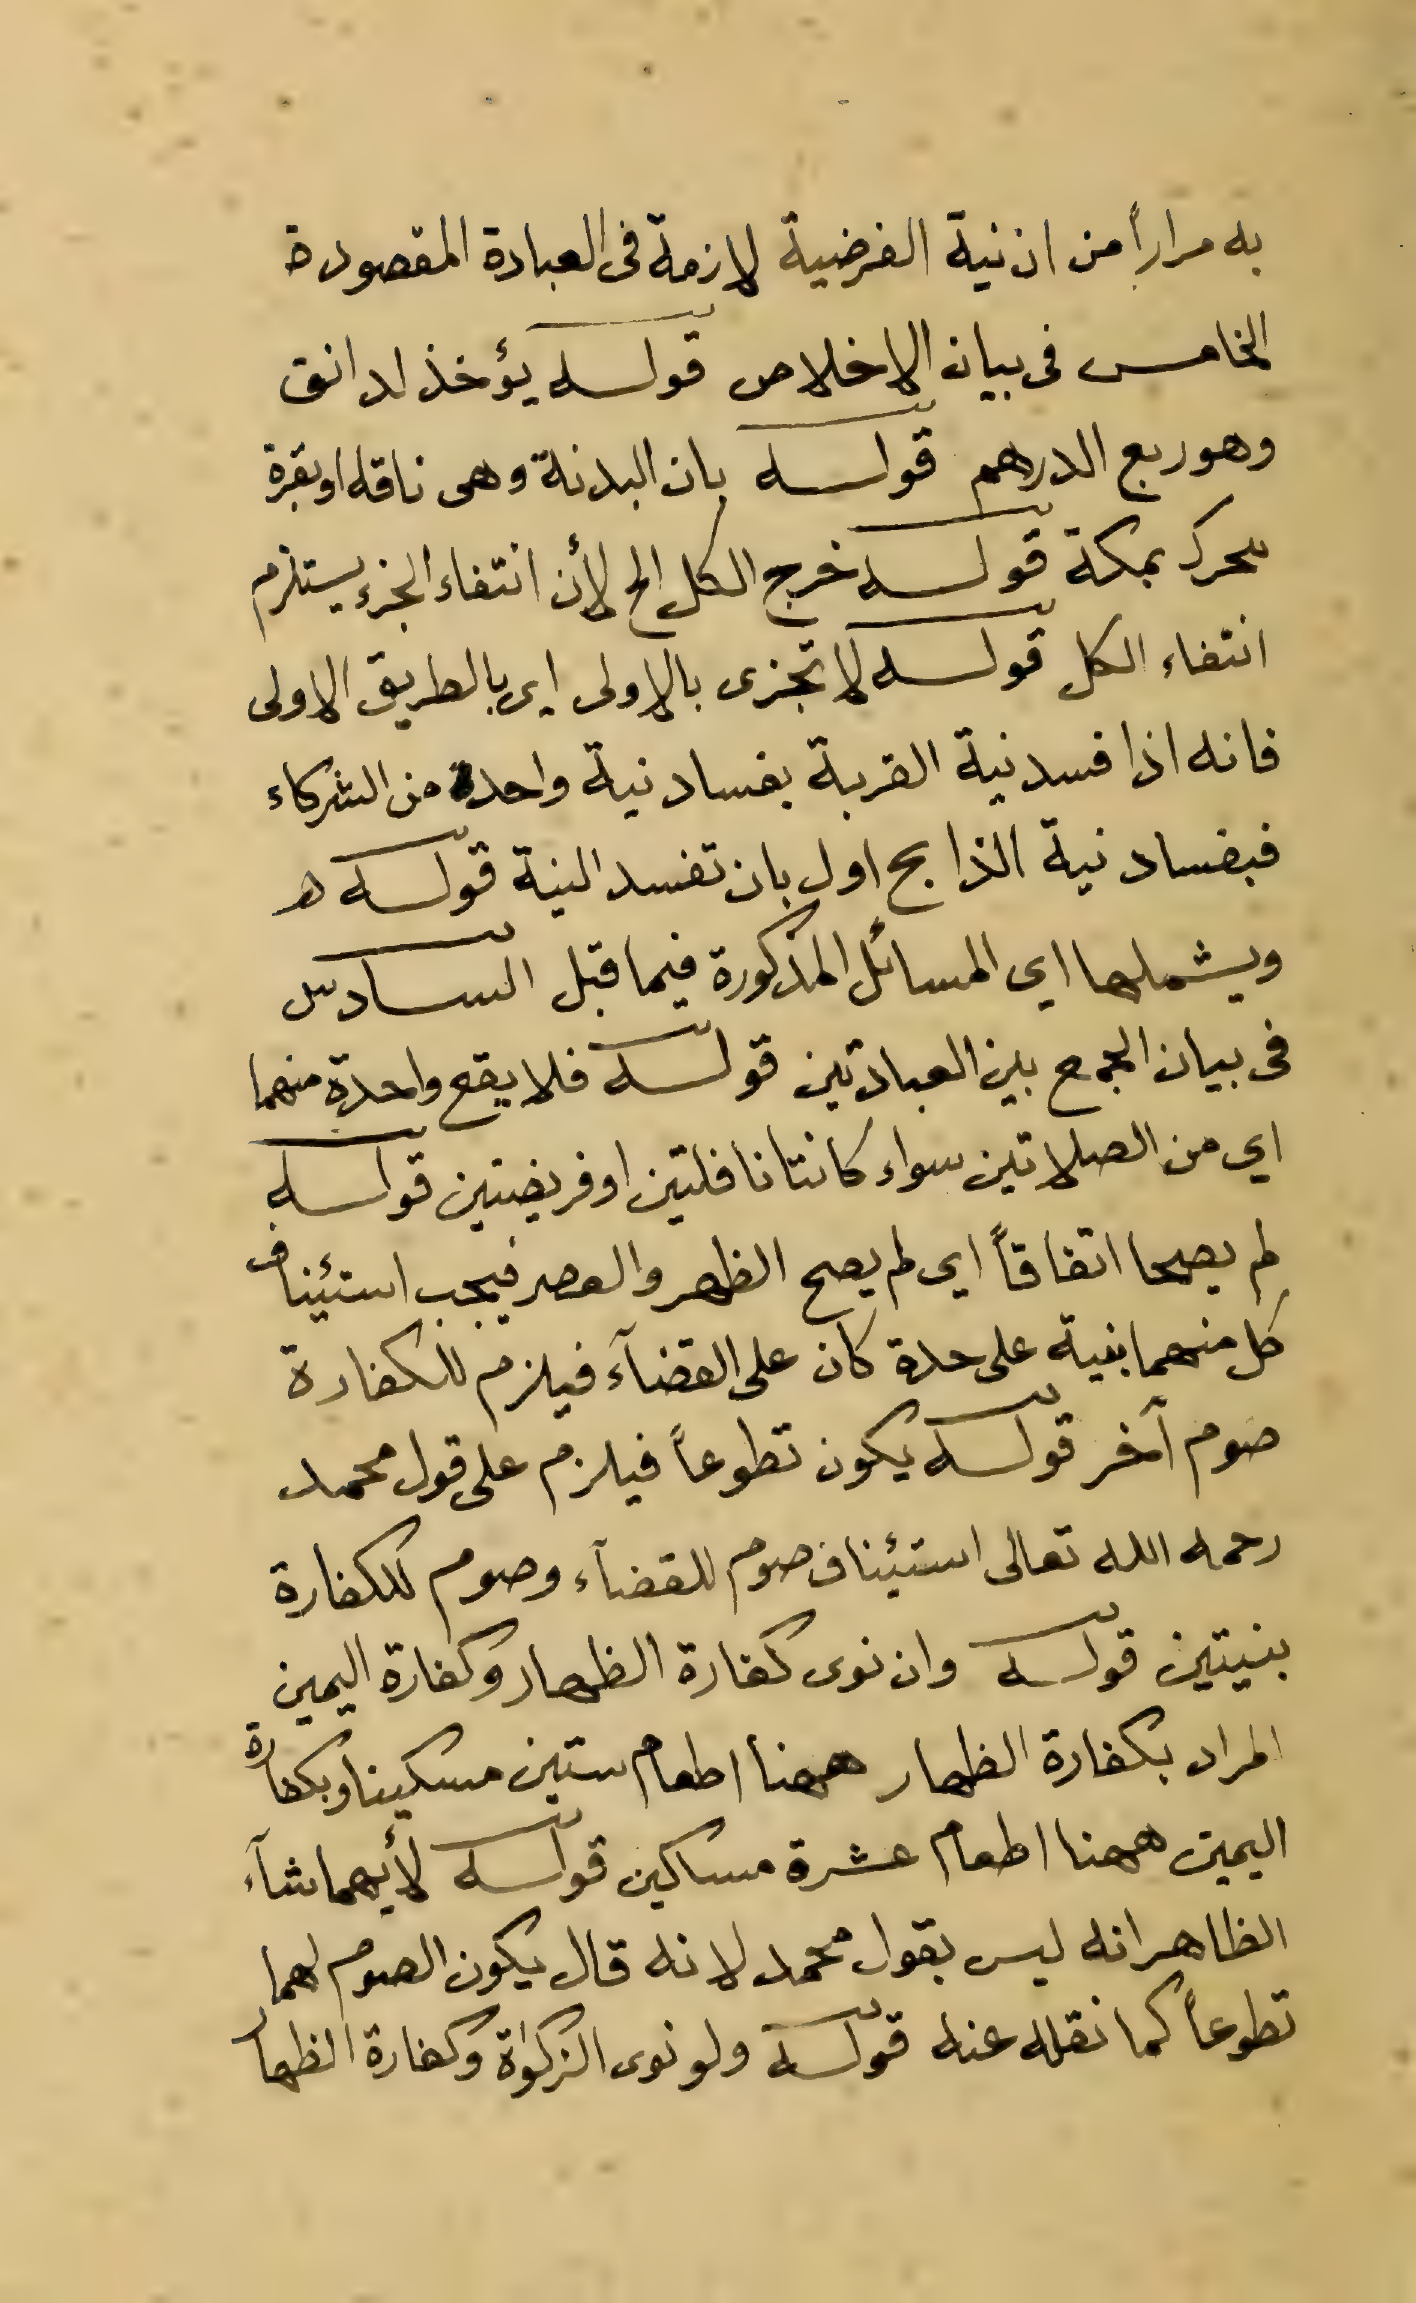 به مراراً من ان نية الفرضية لازمة فى العبادة المقصودة
الخامس فى بيان الاخلاص قوله يؤخذ لدانق
وهو ربع الدرهم قوله بان البدنة وهى ناقة او بقرة
بمكة قوله خرج الكل الخ لأن انتفاء الجزء يستلزم
انتفاء الكل قوله لا تجزى بالاولى اى بالطريق الاولى
فانه اذا فسد نية القربة بفساد نية واحدة من الشركاء
فبفساد نية الذابح اولى بان تفسد النية قوله هـ
ويشملها اى المسائل المذكورة فيما قبل السادس
فى بيان الجمع بين العبادتين قوله فلا يقع واحدة منهما
اي من الصلاتين سواء كانتا نافلتين او فريضتين قوله
لم يصحا اتفاقاً اى لم يصح الظهر والعصر فيجب استئناف
كل منهما بنية على حدة كان على القضآء فيلزم للكفارة
صوم آخر قوله يكون تطوعاً فيلزم على قول محمد
رحمه الله تعالى استئناف صوم للقضآء وصوم للكفارة
بنيتين قوله وان نوى كفارة الظهار وكفارة اليمين
المراد بكفارة الظهار ههنا اطعام ستين مسكينا وبكفارة
اليمين ههنا اطعام عشرة مساكين قوله لأيهما شآء
الظاهر انه ليس بقول محمد لانه قال يكون الصوم لهما
تطوعاً كما نقله عنه قوله ولو نوى الزكوٰة وكفارة الظهار